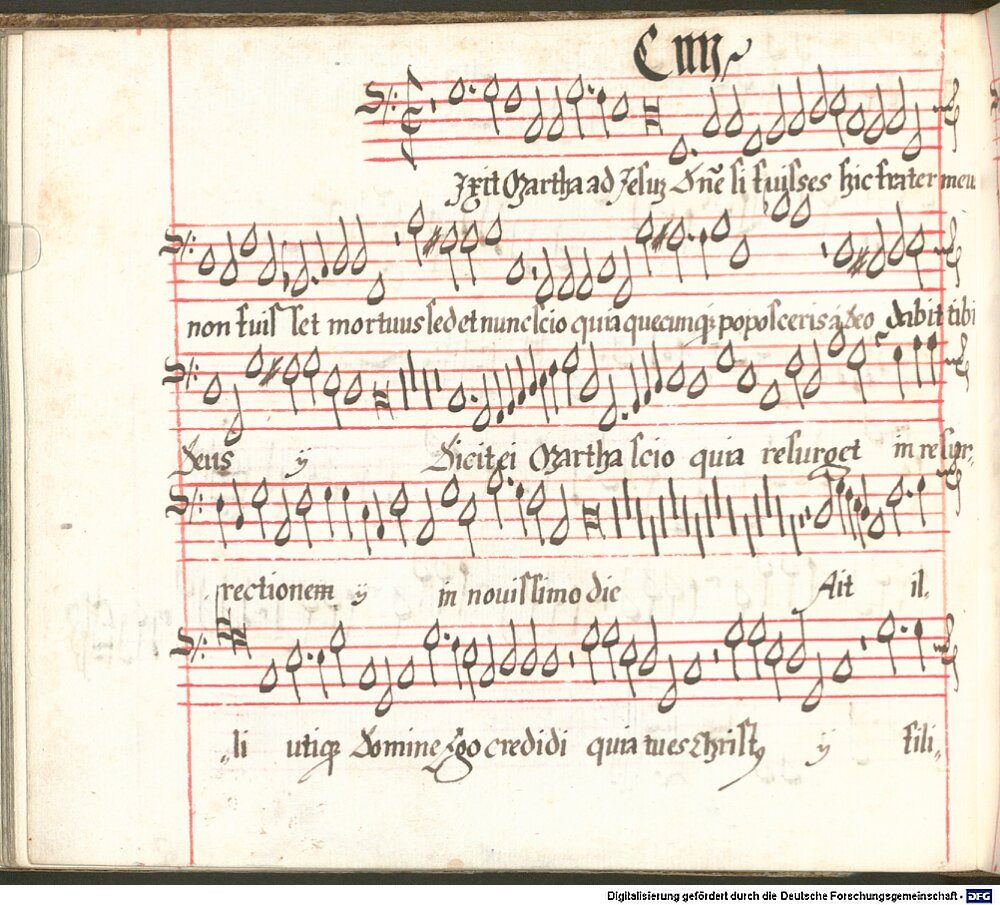 CIIII
Ixit Martha ad Jesuz Dne si fuisses hic frater meu
non fuisset mortuus sed et nunc scio quia quecunqz poposceris a Deo dabit tibi
Deus y Dicit ei Martha scio quia resurget in resur„
rectionem y in novissimo die Ait il„
„li utiqz Domine Ego credidi quia tu es Christ9 y fili„
Digitalisierung gefördert durch die Deutsche Forschungsgemeinschaft - DFG